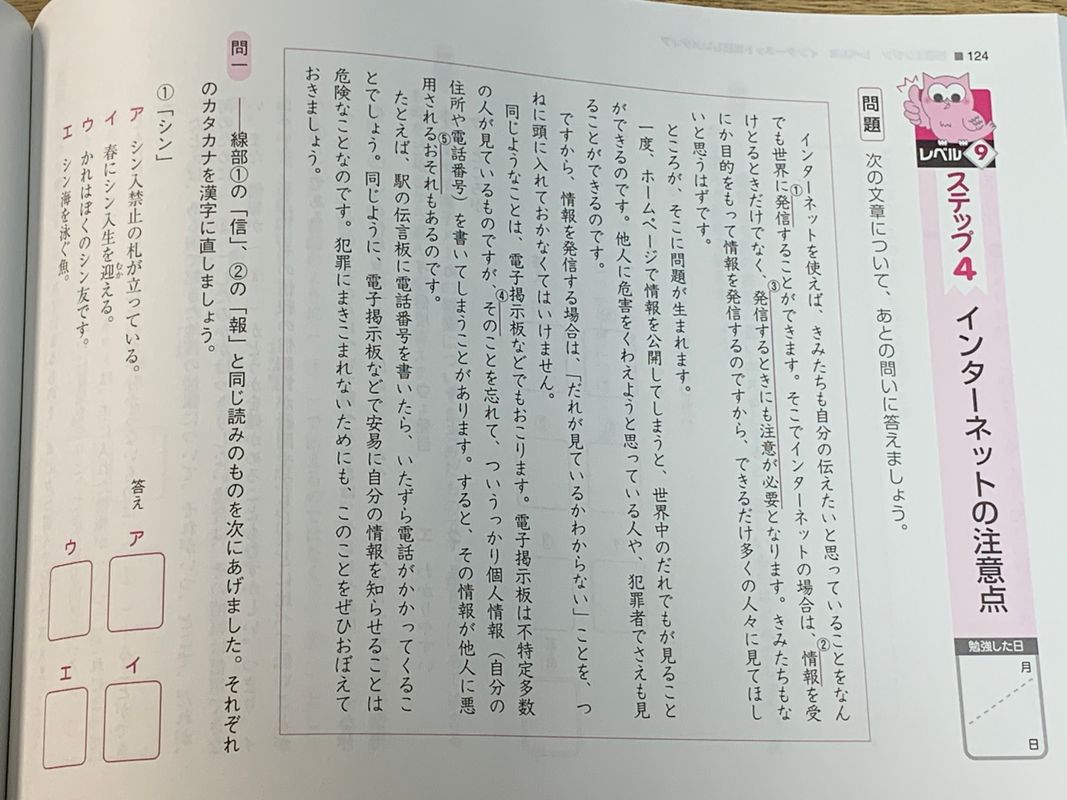 ■124
レベル9
ステップ4
インターネットの注意点
勉強した日
月
日
問題
次の文章について、あとの問いに答えましょう。
インターネットを使えば、きみたちも自分の伝えたいと思っていることをなん
でも世界に①発信することができます。そこでインターネットの場合は、②情報を受
けとるときだけでなく、③発信するときにも注意が必要となります。きみたちもな
にか目的をもって情報を発信するのですから、できるだけ多くの人々に見てほし
いと思うはずです。
ところが、そこに問題が生まれます。
一度、ホームページで情報を公開してしまうと、世界中のだれでもが見ること
ができるのです。他人に危害をくわえようと思っている人や、犯罪者でさえも見
ることができるのです。
ですから、情報を発信する場合は、「だれが見ているかわからない」ことを、つ
ねに頭に入れておかなくてはいけません。
同じようなことは、電子掲示板などでもおこります。電子掲示板は不特定多数
の人が見ているものですが、④そのことを忘れて、ついうっかり個人情報（自分の
住所や電話番号）を書いてしまうことがあります。すると、その情報が他人に悪
用される⑤おそれもあるのです。
たとえば、駅の伝言板に電話番号を書いたら、いたずら電話がかかってくるこ
とでしょう。同じように、電子掲示板などで安易に自分の情報を知らせることは
危険なことなのです。犯罪にまきこまれないためにも、このことをぜひおぼえて
おきましょう。
問一
――線部①の「信」、②の「報」と同じ読みのものを次にあげました。それぞれ
のカタカナを漢字に直しましょう。
①「シン」
ア シン入禁止の札が立っている。
イ 春にシン入生を迎える。
むか
ウ かれはぼくのシン友です。
エ シン海を泳ぐ魚。
答え
ア
イ
ウ
エ